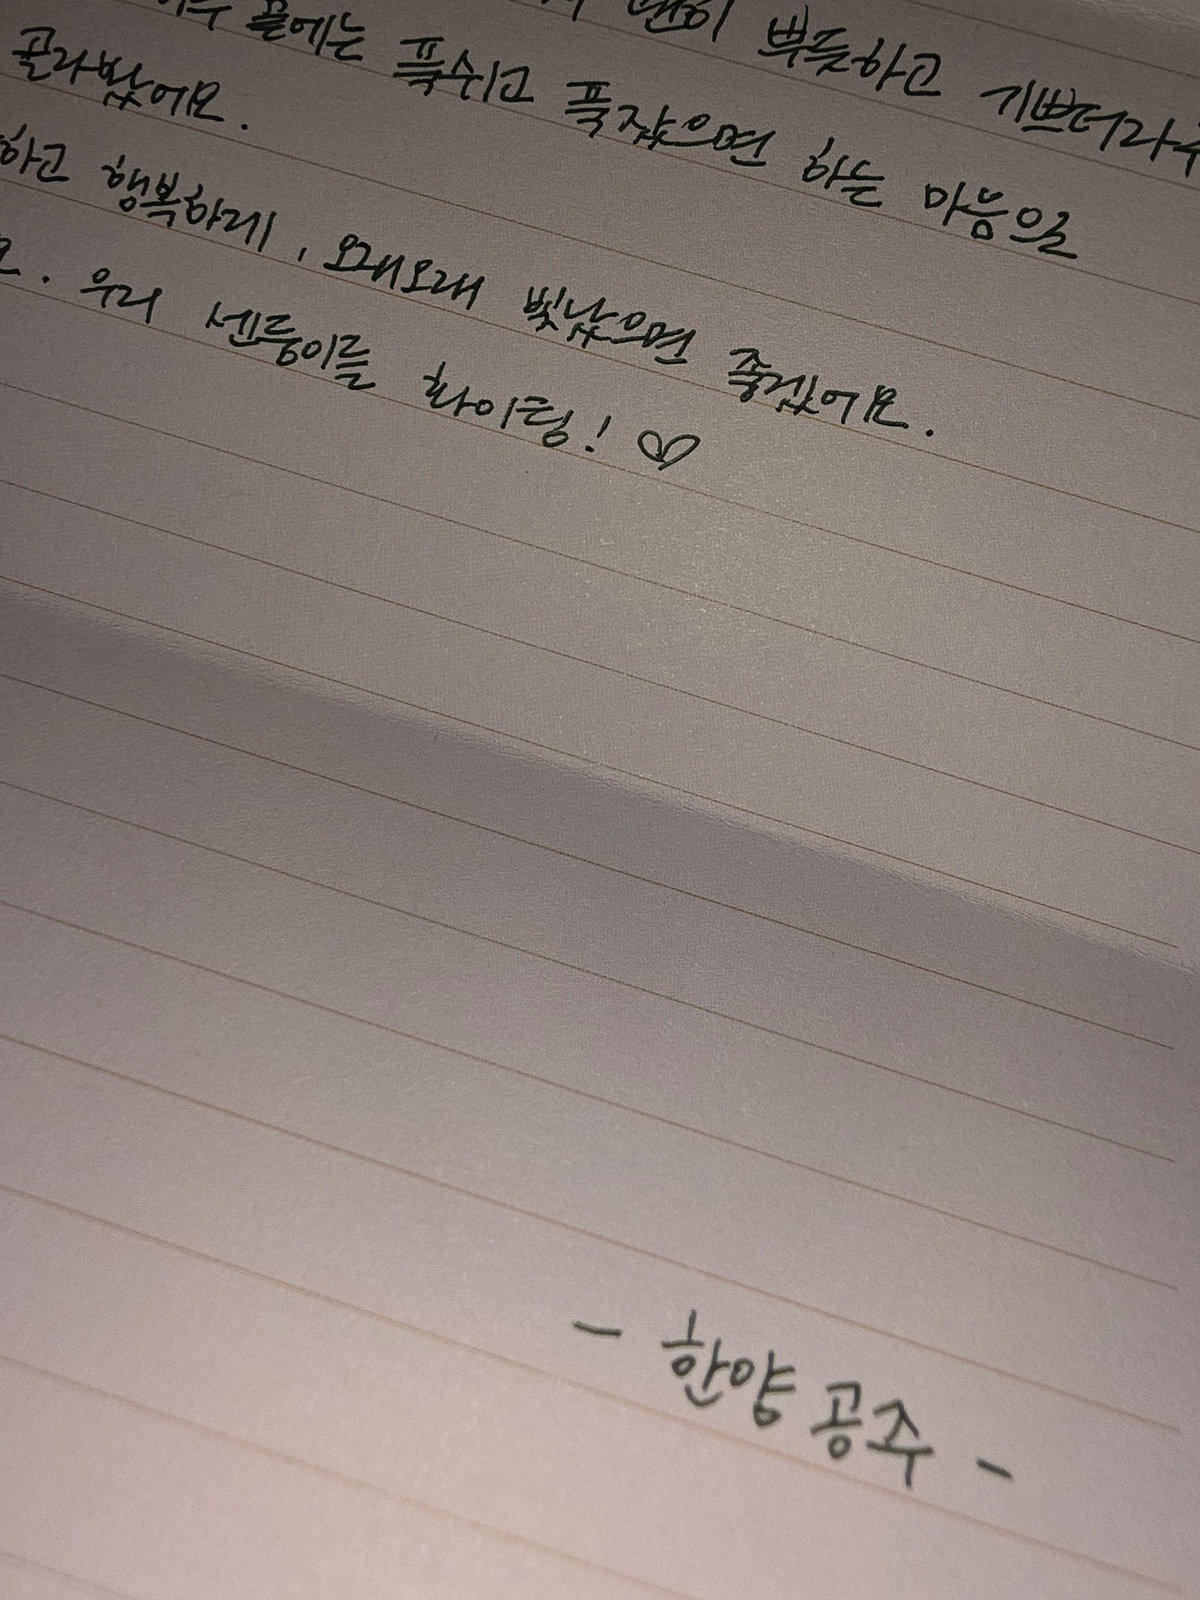 괜히 뿌듯하고
끝에는 푹쉬고 푹잤으면 하는 마음을
골라봤어요.
하고 행복하게, 오래오래 빛났으면 좋겠어요.
요. 우리 센둥이들 화이팅! ♡
- 한양 공주 -